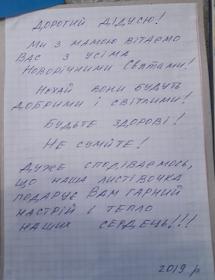 Дорогий дідусю!
Ми з мамою вітаємо
Вас з усіма
Новорічними святами!
Нехай вони будуть
добрими і світлими!
Будьте здорові!
Не сумуйте!
Дуже сподіваємось,
що наша листівочка
подарує Вам гарний
настрій і тепло
наших сердець!!!
2019 р.